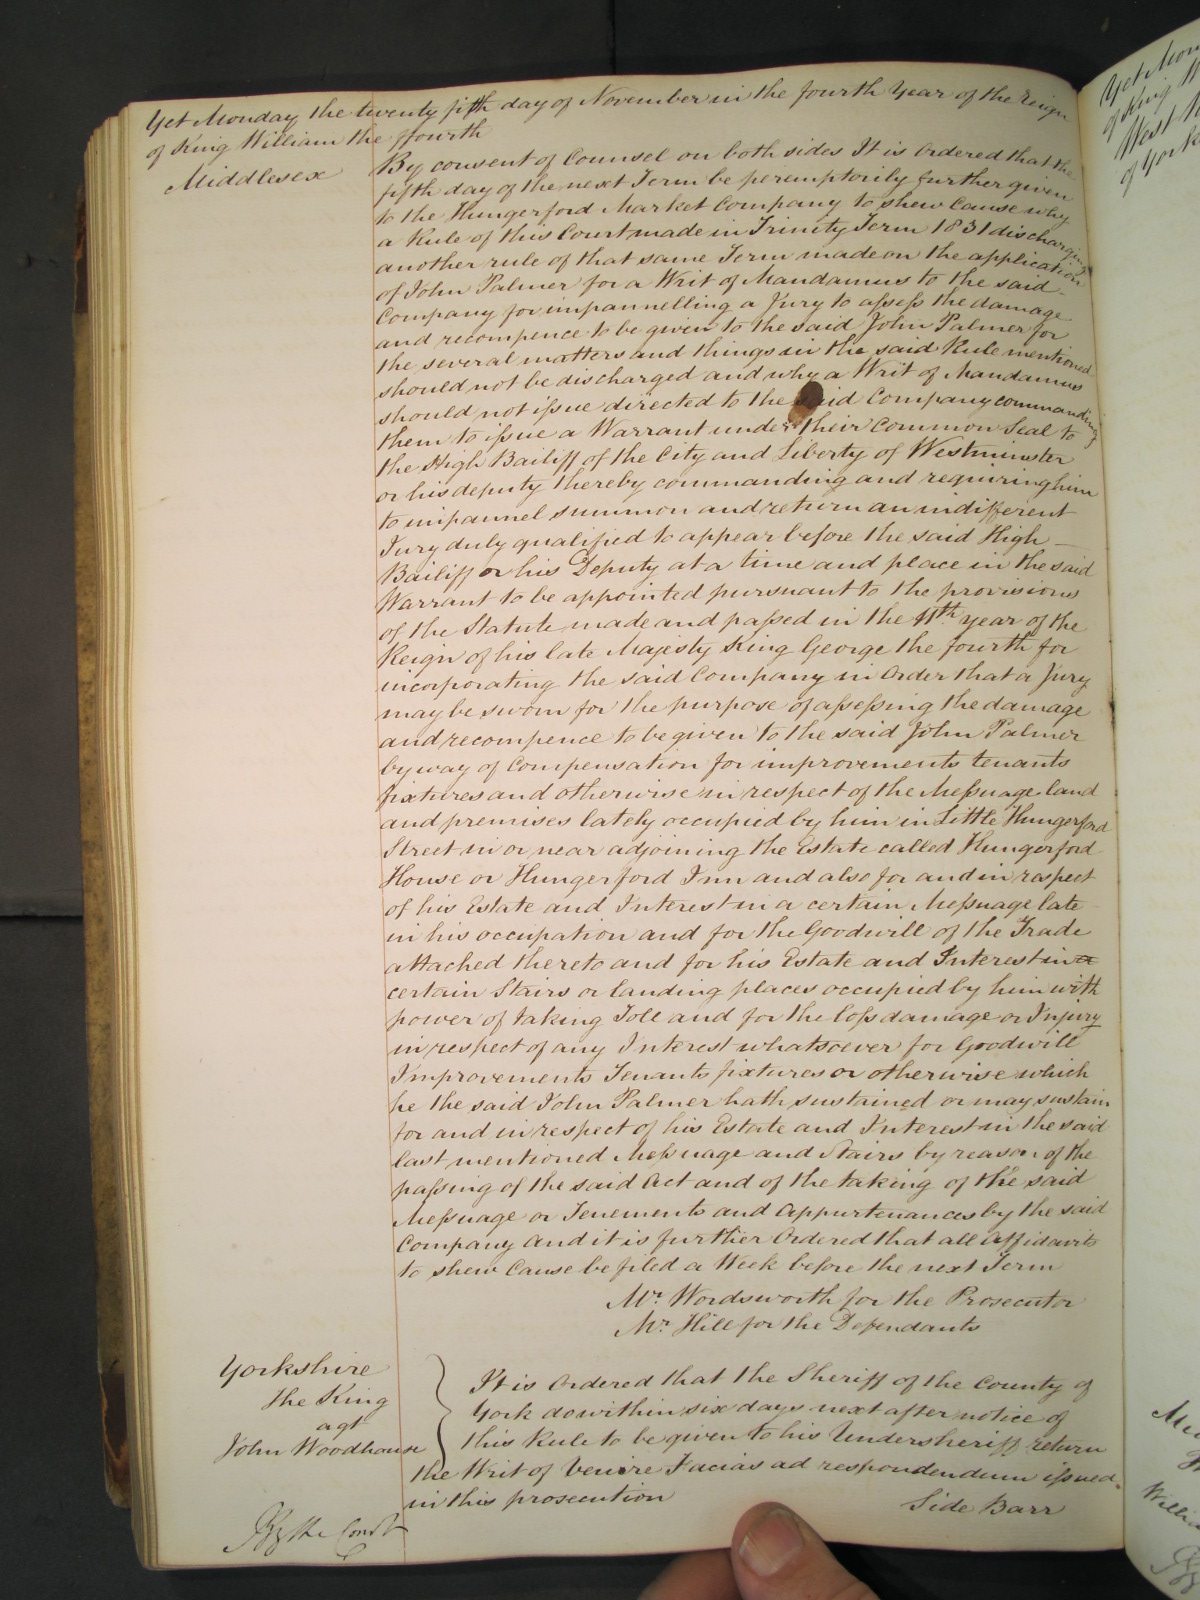 Yet Monday the twenty fifth day of November in the fourth Year of the reign
of King William the ffourth
Middlesex
By consent of Counsel on both sides It is Ordered that the
fifth day of the next Term be peremptorily further given
to the Hungerford Market Company to shew Cause why
a Rule of this Court made in Trinity Term 1831 discharging
another rule of that same Term made on the application
of John Palmer for a Writ of Mandamus to the said
Company for impannelling a Jury to assess the damage
and recompence to be given to the said John Palmer for
the several matters and things in the said Rule mentioned
should not be discharged and why a Writ of Mandamus
should not issue directed to the said Company commanding
them to issue a Warrant under their Common Seal to
the High Bailiff of the City and Liberty of Westminster
or his deputy thereby commanding and requiring him
to impannel summon and return an indifferent
Jury duly qualified to appear before the said High
Bailiff or his Deputy at a time and place in the said
Warrant to be appointed pursuant to the provisions
of the Statute made and passed in the 11th. year of the
Reign of his late Majesty King George the fourth for
incorporating the said Company in Order that a Jury
may be sworn for the purpose of assessing the damage
and recompence to be given to the said John Palmer
by way of Compensation for improvements tenants
fixtures and otherwise in respect of the Messuage land
and premises lately occupied by him in Little Hungerford
Street in or near adjoining the Estate called Hungerford
House or Hungerford Inn and also for and in respect
of his Estate and Interest in a certain Messuage late
in his occupation and for the Goodwill of the Trade
attached thereto and for his Estate and Interest in a
certain Stairs or landing places occupied by him with
power of taking Toll and for the loss damage or Injury
in respect of any Interest whatsoever for Goodwill
Improvements Tenants fixtures or otherwise which
he the said John Palmer hath sustained or may sustain
for and in respect of his Estate and Interest in the said
last mentioned Messuage and Stairs by reason of the
passing of the said Act and of the taking of the said
Messuage or Tenements and Appurtenances by the said
Company And it is further Ordered that all Affidavits
to shew Cause be filed a Week before the next Term
Mr. Wordsworth for the Prosecutor
Mr. Hill for the Defendants
Yorkshire
The King
agt
John Woodhouse
It is Ordered that the Sheriff of the County of
York do within six days next after notice of
this Rule to be given to his Undersheriff return
the Writ of Venire Facias ad respondendum issued
in this prosecution
Side Barr
By the Court
Yet Mon
of King W
West
of York